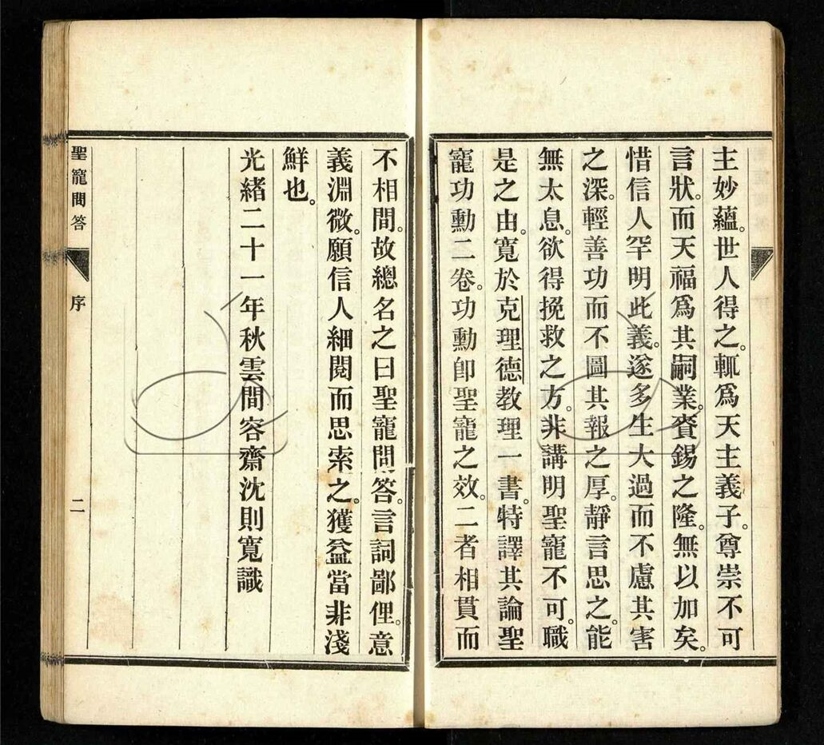 主妙蘊。世人得之。輒爲天主義子。尊崇不可
言狀。而天福爲其嗣業。賚錫之隆。無以加矣。
惜信人罕明此義。遂多生大過而不慮其害
之深。輕善功而不圖其報之厚。靜言思之。能
無太息。欲得挽救之方。非講明聖寵不可。職
是之由。寬於克理德教理一書。特譯其論聖
寵功勳二卷。功勳卽聖寵之效。二者相貫而
不相間。故總名之曰聖寵問答。言詞鄙俚。意
義淵微。願信人細閱而思索之。獲益當非淺
鮮也。
光緒二十一年秋雲間容齋沈則寬識
聖寵問答
序
二